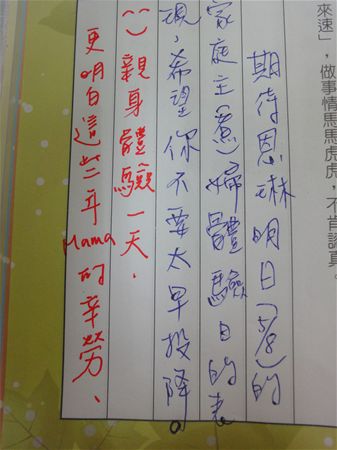 來速」，做事情馬馬虎虎，不肯認真。
期待恩琳明日(5/8)的
家庭主(煮)婦體驗日的表
現，希望你不要太早投降。
親身體驗一天，
更明白這些年Mama的辛勞、